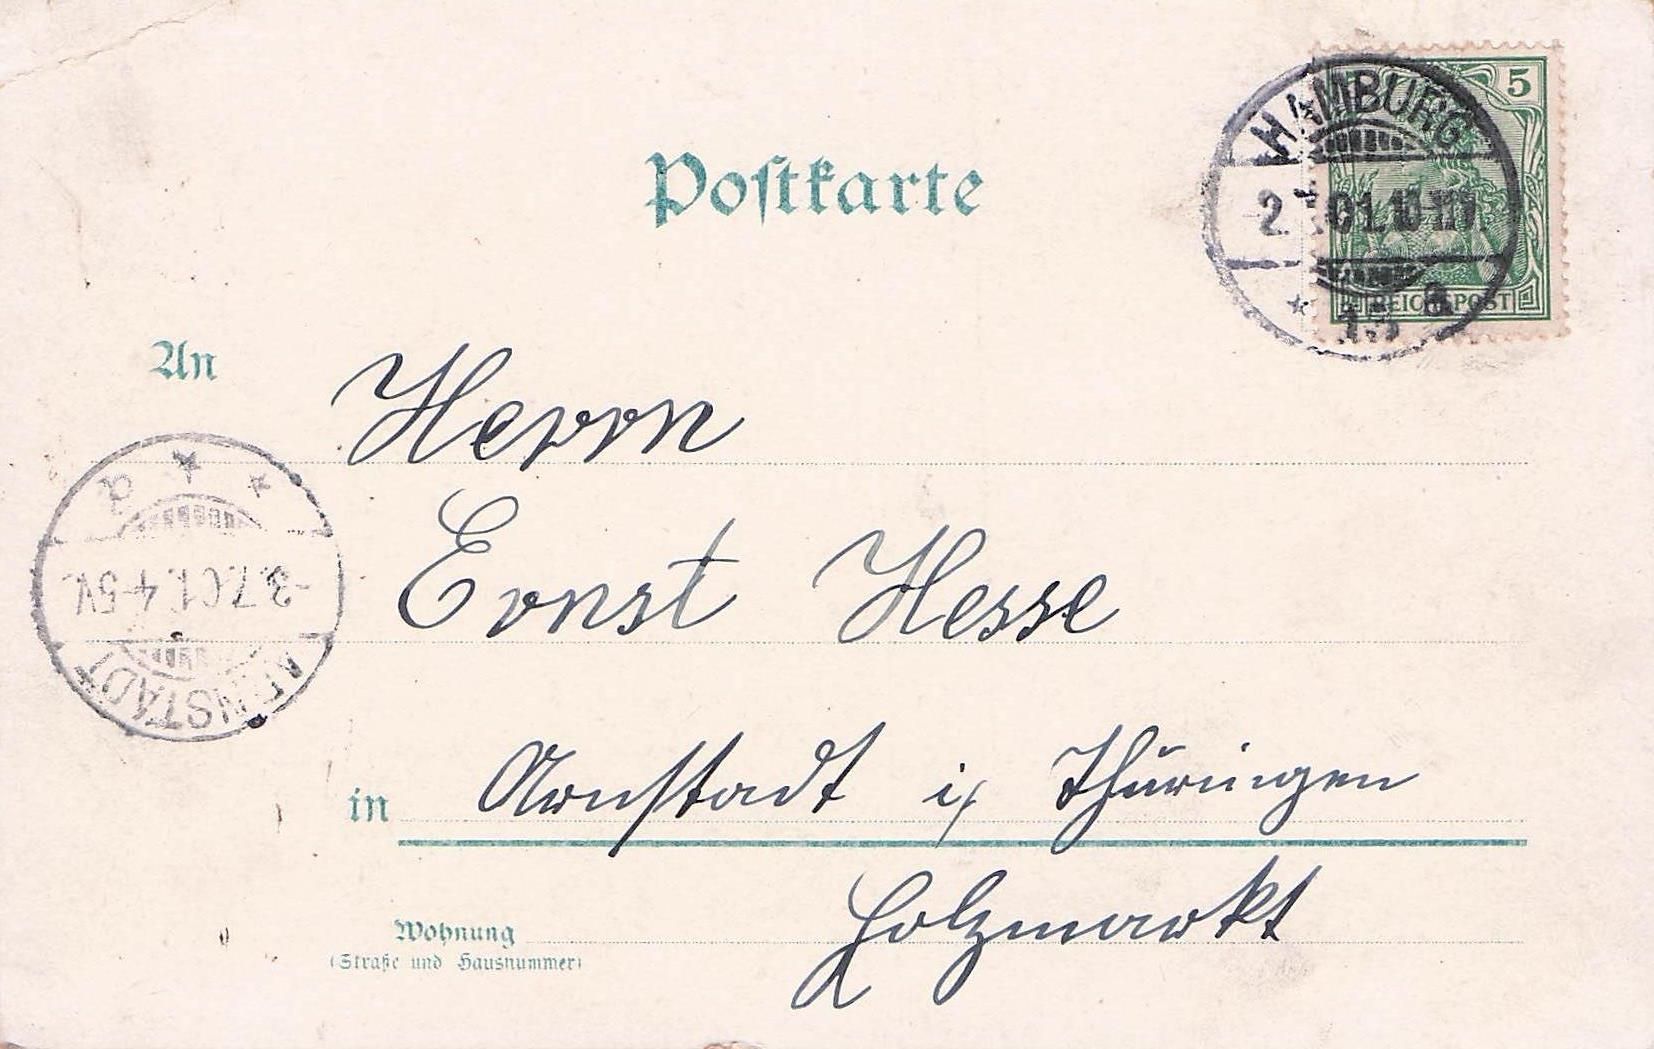 Postkarte
HAMBURG
5
2. 01. 10-11
15 a
REICHSPOST
An
Herrn
Ernst Hesse
ARNSTADT
3.7.01. 4-5N.
a
in Arnstadt i/ Thüringen
Wohnung Holzmarkt
(Straße und Hausnummer)